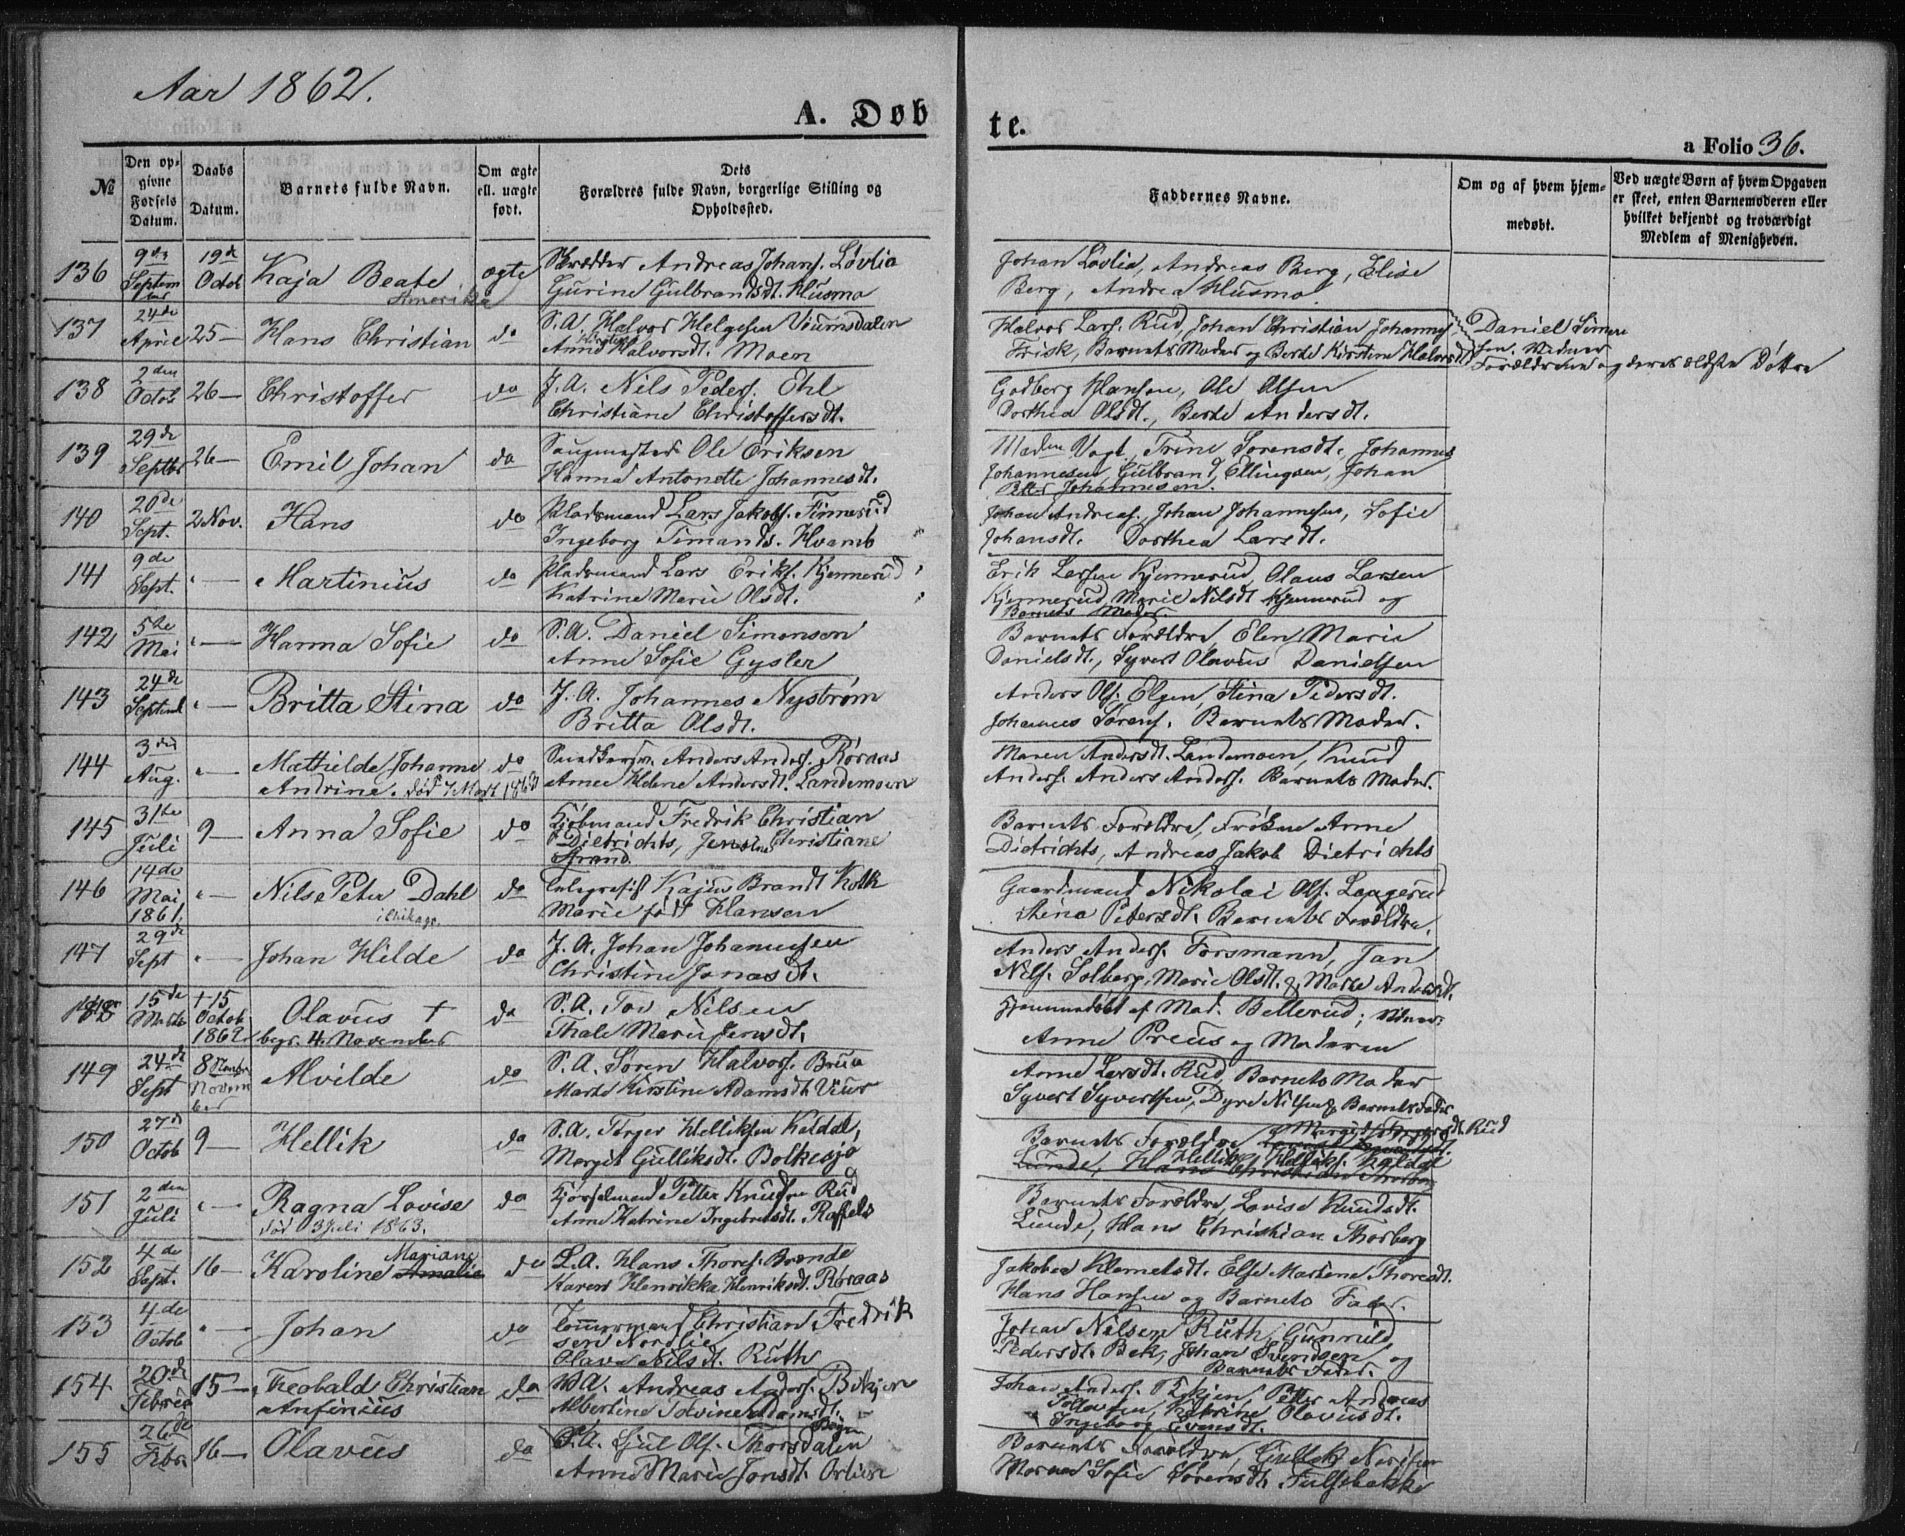 Aar 1862.
A. Døbte.
a Folio 36.
№
Den opgivne Fødsels Datum.
Daabs Datum.
Barnets fulde Navn.
Om ægte ell. uægte født.
Dets Forældres fulde Navn, borgerlige Stilling og Opholdssted.
Faddernes Navne.
Om og af hvem hjemmedøbt.
Ved uægte Børn af hvem Opgaven er skeet, enten Barnemoderen eller hvilket bekjendt og troværdigt Medlem af Menigheden.
136 9de September 19de Octob Kaja Beate ægte Skrædder Andreas Johans. Løvlia
Gurine Gulbrandsdt. Husmo
Johan Løvlia, Andreas Berg, Elise
Berg, Andrea Husmo.
Amerika
137 24de April 25— Hans Christian do S.A. Halvor Helgesen
Anne Halvorsdt. Moen
Halvor Lars. Rud, Johan Christian Johannes
Frisk, Barnets Moder og Berte Kirstine Halvorsdt
Daniel Simen
sen. Vidner
Forældrene og deres ældste Dottre
138 2den Octob 26— Christoffer do J.A. Nils Peders. Ehl
Christiane Christoffersdt.
Godberg Hansen, Ole Olsen
Dorthea Olsdt., Berte Andersdt.
139 29de Septbr 26— Emil Johan do Saugmester Ole Eriksen
Hanna Antonette Johannesdt.
Madm Vogt, Trine Sørensdt. Johannes
Johannesen, Gulbrand Ellingsen, Johan
Petter Johannesen.
140 20de Sept. 2 Nov. Hans do Pladsmand Lars Jakobs. Finnerud
Ingeborg Timands. Hvamb
Johan Andreas. Johan Johannesen, Sofie
Johansdt. Dorthea Larsdt.
141 9de Sept. "— Martinius do Pladsmand Lars Eriks. Kjennerud
Katrine Marie Olsdt.
Erik Larsen Kjennerud, Olaus Larsen
Kjennerud, Marie Nilsdt Kjennerud og
Barnets Moder.
142 5te Mai "— Hanna Sofie do S.A. Daniel Simonsen
Anne Sofie Gysler
Barnets Forældre, Elen Marie
Danielsdt., Syvert Olavus Danielsen
143 24de Septemb "— Britta Stina do J.A. Johannes Nystrøm
Britta Olsdt.
Anders Ols. Elgen, Stina Pedersdt.
Johannes Sørens. Barnets Moder.
144 3die Aug. "— Mathilde Johanne
Andrine. død 7 Mart 186 do Anders Anders. Røraas
Anne Helene Andersdt. Landemoen
Maren Andersdt. Landemoen, Knud
Anders. Anders Anders. Barnets Moder.
145 31te Juli 9— Anna Sofie do Kjøbmand Fredrik Christian
Dietrichs, Jensine Christiane
Strand
Barnets Forældre, Frøken Anne
Dietrichs, Andreas Jakob Dietrichs
146 14de Mai 1861. "— Nils Peter Dahl do Telegrafist Kajus Brandt Kolk
Marie født Hansen
i Chikago.
Gaardmand Nikolai Ols. Laagerud
Stina Petersdt. Barnets Forældre.
147 29de Sept "— Johan Hilde do J.A. Johan Johannesen
Christine Jonasdt.
Anders Anders. Forsmann, Jan
Nils. Solberg, Marie Olsdt. og Marte Andersdt.
148 15de † 15 Octob 1862 Olavus † do S.A. Tov Nilsen
begr. 4 November
Thale Marie Jensdt.
Hjemmedøbt af Mad. Bellerud; Vidner:
Anne Preus og Moderen
149 24de Sept 8 November Alvilde do S.A. Søren Halvors. Brua
Marte Kirstine Adamsdt.
Anne Larsdt. Rud, Barnets Moder
Syvert Syvertsen, Dyre Nilsen og Barnets Fader
150 27de Octob 9— Hellik do S.A. Torger Helliksen Kaldal,
Margit Gulliksdt. Bolkesjø
Barnets Forældre, Rud
Lunde, Hans Christian Thorberg
Hellik Helliks. Kaldal
151 2den Juli "— Ragna Lovise do Kjørselmand Petter Knudsen Rud
død 3 Juli 1863.
Anne Katrine Ingebretsdt. Raffels
Barnets Forældre, Lovise Knudsdt.
Lunde, Hans Christian Thorberg
152 4de Sept. 16— Karoline Amalie Mariane do S.A. Hans Thores. Brende
Karen Henrikka Henriksdt. Røraas
Jakobea Klemetsdt. Else Martine Thoresdt.
Hans Hansen og Barnets Fader.
153 4de Octob "— Johan do Tømmermand Christian Fredrik
sen Nordlie
Olava Nilsdt. Ruth
Johan Nilsen Ruth, Gunnild
Pedersdt. Bek, Johan Svendsen og
Barnets Fader.
154 20de Febru 15— Theobald Christian
Anfinius do Andreas Anders. Bekjen
Albertine Tovine Adamsdt.
Johan Anders. Bekjen, Petter Andreas
Tollevsen, Katrine Olavusdt.
Ingeborg Evensdt.
155 26de Febr 16— Olavus do S.A. Gjul Ols. Thorsdalen
Anne Marie Jonsdt.
Barnets Forældre, Gullik
Maren Sofie Sørensdt.